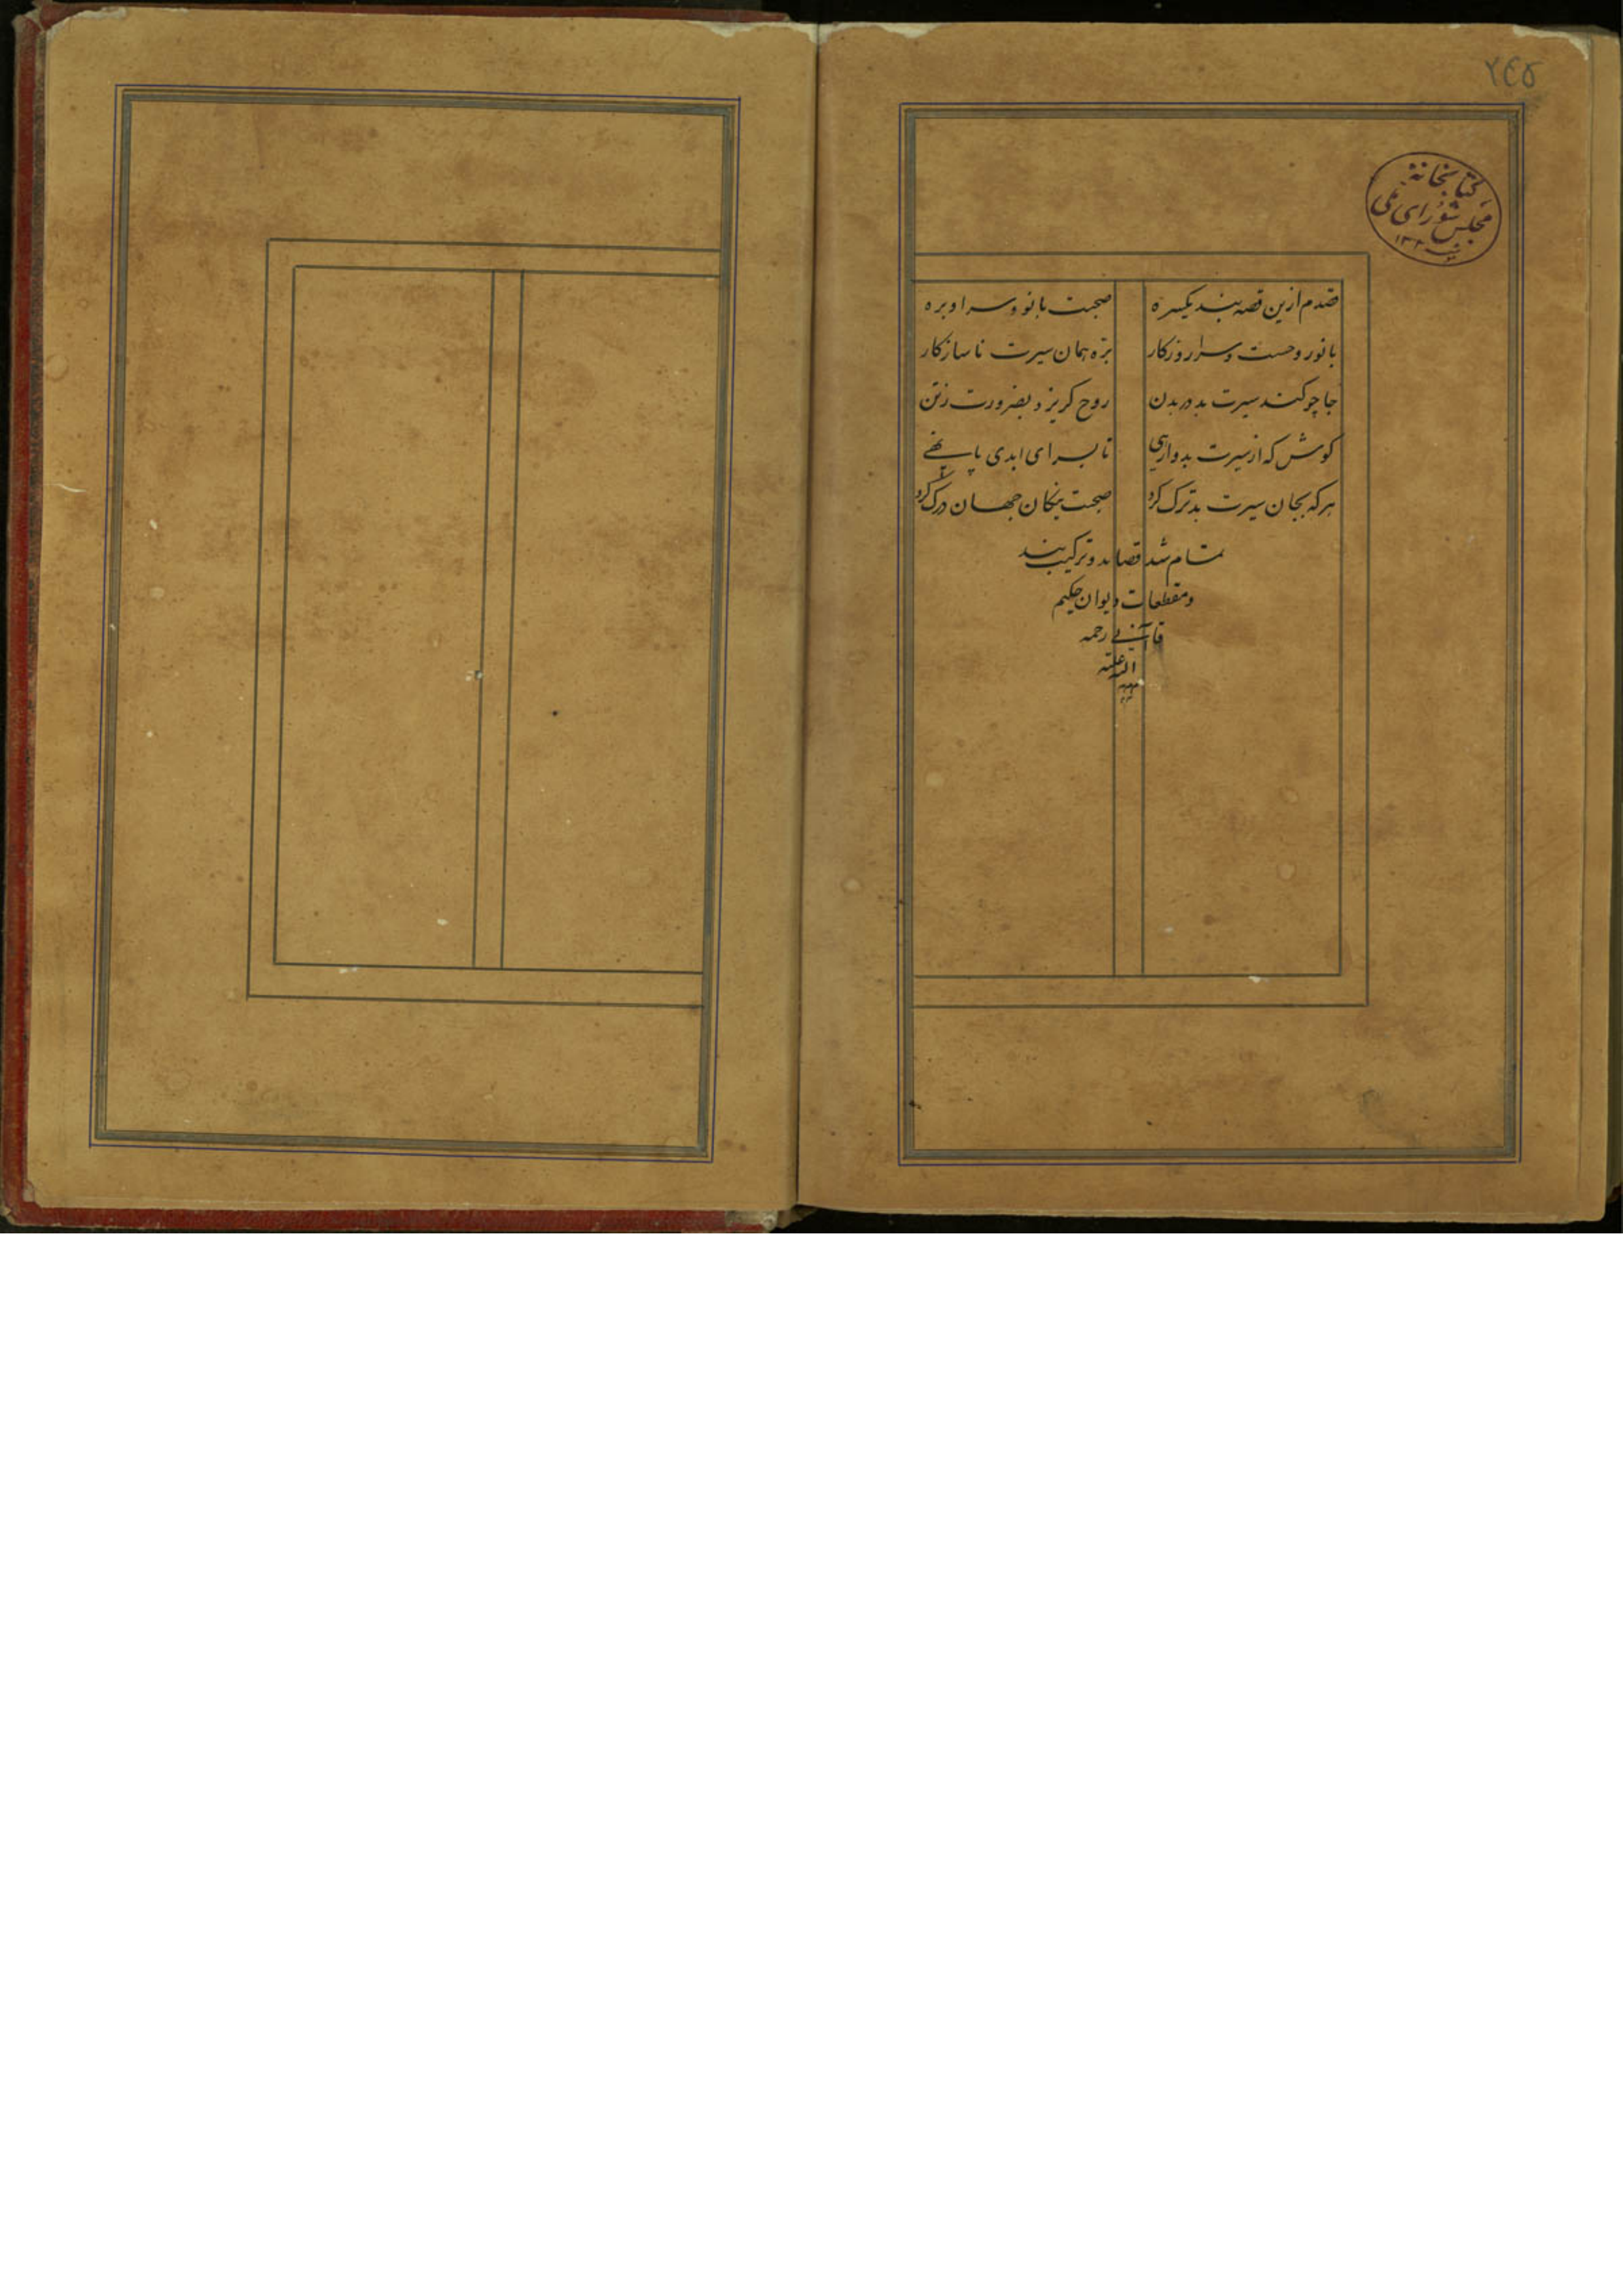 ۲٤۵
کتابخانهٔ
مجلس شورای ملی
قصدم ازین قصه نبد یکسره صحبت بانو و سرا و بره
بانو روحست و سرا روزکار بره همان سیرت ناسازکار
جا چو کند سیرت بد در بدن روح کریزد بضرورت ز تن
کوش که از سیرت بد وارهی تا بسرای ابدی پا نهی
هر که بجان سیرت بد ترک کرد صحبت نیکان جهان درک کرد
تمام شد قصاید و ترکیب بند
و مقطعات دیوان حکیم
قاآنی رحمه
الله علیه